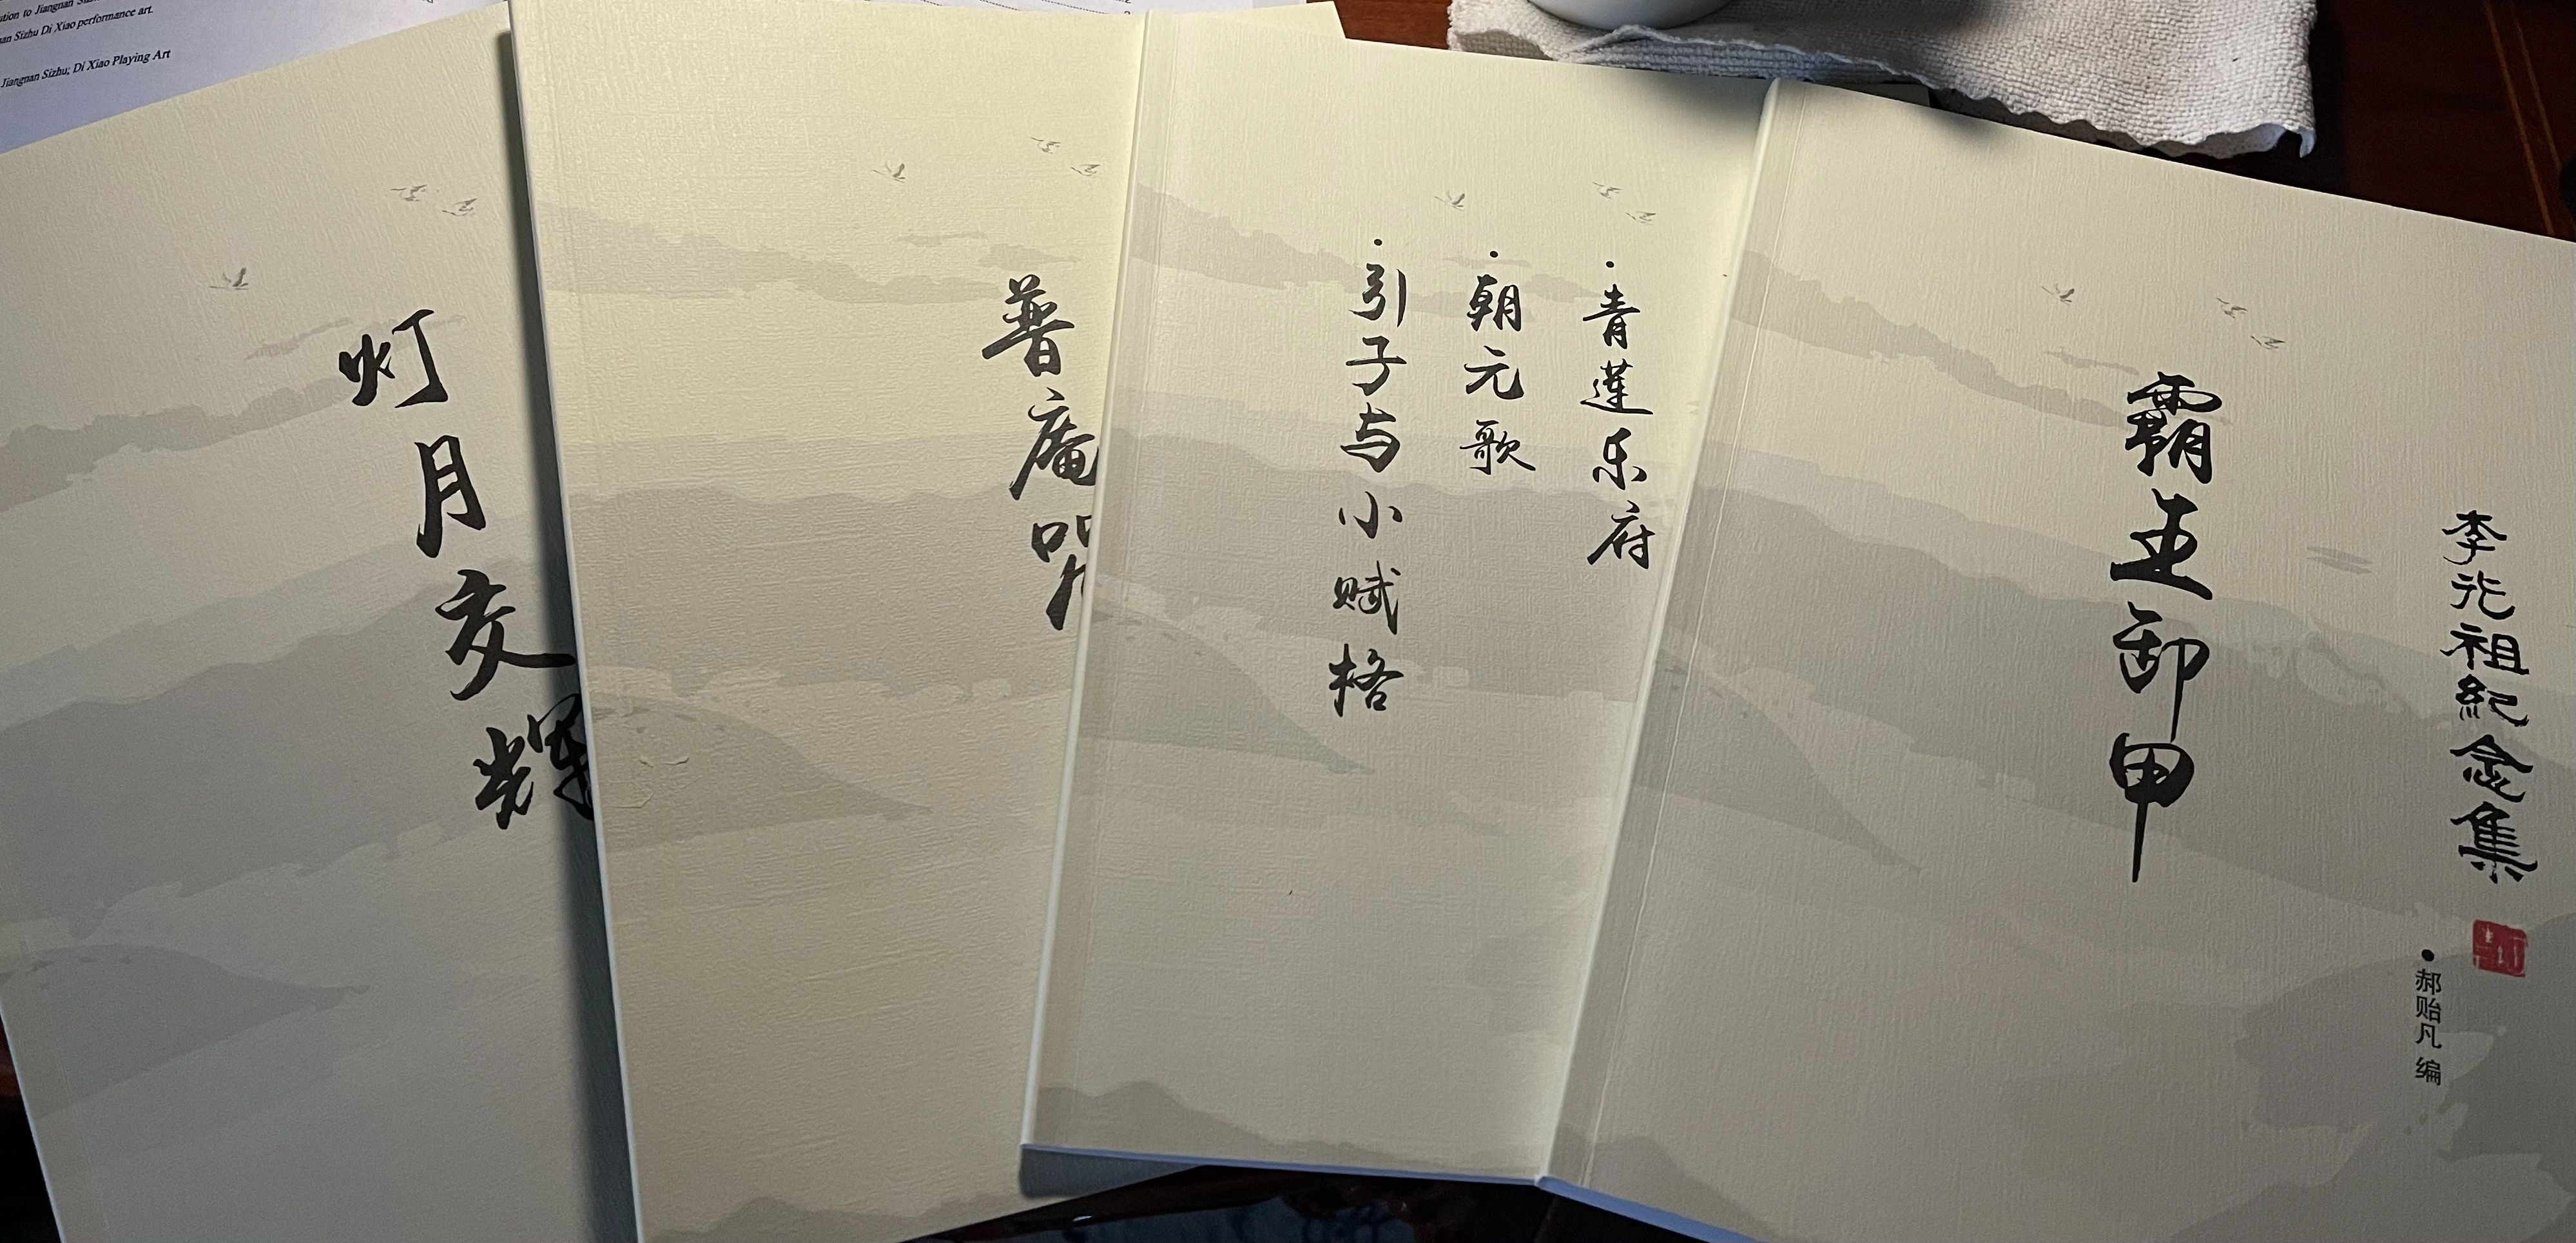 ution to Jiangnan
an Sizhu Di Xiao performance art.
Jiangnan Sizhu; Di Xiao Playing Art
灯月交辉
普庵咒
·青莲乐府
·朝元歌
·引子与小赋格
霸王卸甲
李光祖紀念集
●郝贻凡 编